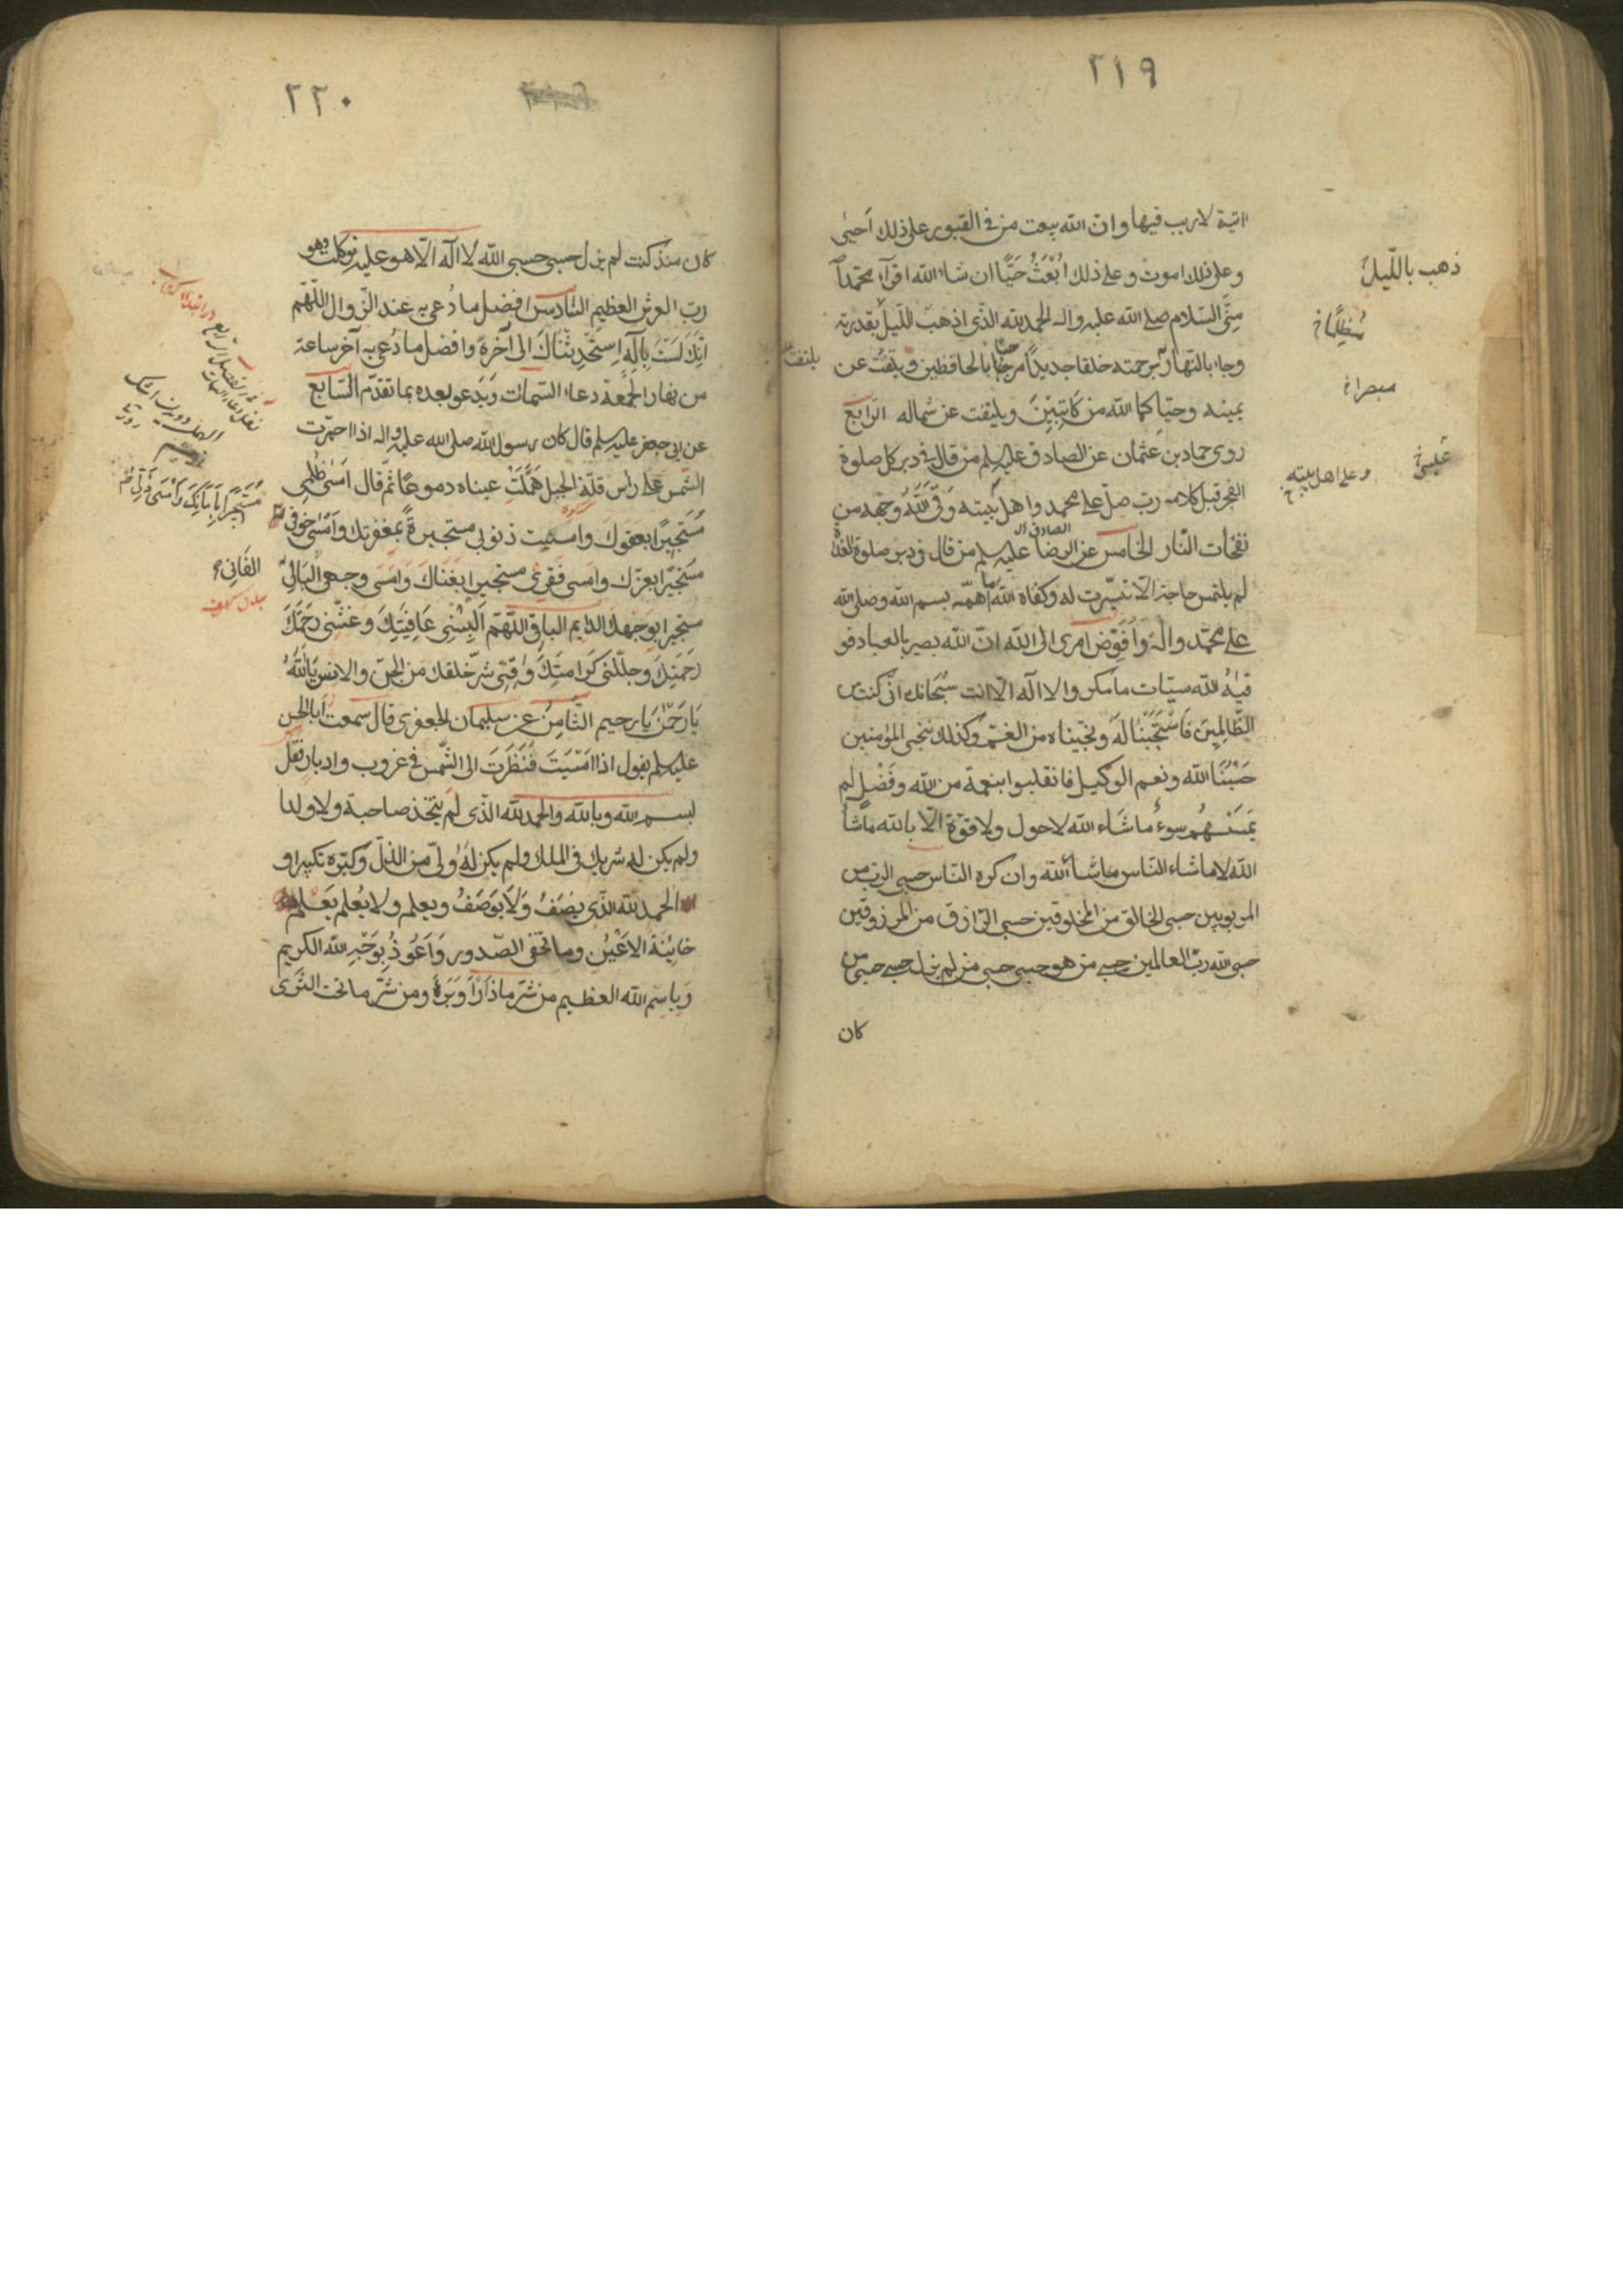 ٢١٩
اتية لا ريب فيها وان الله يبعث من فى القبور على ذلك احيى
وعلى ذلك اموت وعلى ذلك اُبْعَثُ حَيًّا ان شاء الله اقرآ محمداً
مِنّى السّلام صلى الله عليه واله الحمد لله الذى اذهب اللّيل بقدرته
وجاء بالنهار برحمته خلقا جديداً مرحبا بالحافظين ويلتفت عن
يمينه وحيّاكما الله من كَاتِبَيْنِ ويلتفت عن شماله الرّابع
روى حماد بن عثمان عن الصادق عليه السلم من قال فى دبر كل صلوة
الفجر قبل كلامه رب صلّ على محمد واهل بيته وَقَى اللهُ وجهه من
نفحات النّار الخامس عن الرضا عليه السلم من قال فى دبر صلوة الغداة
لم يلتمس حاجة الّا تيسّرت له وكفاه الله ما اهمّه بسم الله وصلى الله
على محمّد واله وَاُفَوِّض امرى الى الله انّ الله بصير بالعباد فو
قيٰهُ الله سيّئات ما مكروا لا اله الّا انت سُبْحَانك انّى كنت من
الظّالِمِينَ فَاسْتَجَبْنَا لَهُ ونجّيناه من الغمّ وكذلك ننجى المؤمنين
حَسْبُنَا الله ونعم الوكيل فانقلبوا بنعمة من الله وفَضْلٍ لم
يَمْسَسْهُم سوءٌ ما شَاء الله لا حول ولا قوّة الّا بالله ما شاءَ
الله لا ما شاء النّاس ما شاءَ الله وان كره النّاس حسبى الرّب من
المربوبين حسبى الخالق من المخلوقين حسبى الرّازق من المرزوقين
حسبى الله ربّ العالمين حسبى من هو حسبى حسبى من لم يزل حسبى حسبى من
كان
ذهب باللّيل
مُظلِمًا خ
مبصرا خ
وعلى اهل بيته
يلتفت
٢٢٠
كان منذ كنت لم يزل حسبى حسبى الله لا اله الّا هو عليه توكلت وهو
ربّ العرش العظيم السّادس افضل ما دُعى به عند الزّوال اللّهّم
اِنّكَ لَسْتَ بِاِلٰهٍ اِسْتَحْدَثْنَاكَ الى آخره وافضل ما دُعى به آخر ساعة
من نهار الجُمعَة دعاء السّمات ويَدعو بعده بما تقدّم السّابع
عن ابى جعفر عليه السلم قال كان رسول الله صلى الله عليه واله اذا احمرّت
الشّمس على رأس قلّة الجبل هَمَلَتْ عيناه دموعًا ثمّ قال اَمْسٰى ظُلْمِى
مُسْتَجِيرًا بعفوك وامسيت ذنوبى مستجيرةً بمغفرتك وَاَمْسٰى خوفى
مستجيرًا بعزّك وامسى فَقرِى مستجيرا بِغَنَاكَ وَاَمْسَى وجهى البَالِىْ
مستجيرا بوَجْهك الدّايم الباقى اللّهّم اَلْبِسْنِى عَافِيَتَكَ وَغَشِّنى رَحْمَتَكَ
وجلّلنى كَرَامتَكَ وَقِنى شرّ خلقك من الجنّ والانس يَا اللهُ
يَا رَحْمٰنُ يَا رحيم الثّامِنُ عن سليمان الجعفرى قال سمعت ابا الحسن
عليه السلم يقول اذا اَمْسَيتَ فَنَظَرتَ الى الشّمس فى غروب وادبار فقل
بسم الله وبالله والحمد لله الّذى لم يتّخذ صاحبة ولا ولدا
ولم يكن له شريك فى الملك ولم يكن لَهُ ولىّ من الذلّ وكبّره تكبيرا و
الحمد لله الذّى يَصِفُ وَلَا يُوصَفُ ويعلم ولا يُعلم يَعْلَم
خاينة الاَعْيُن وما تخفى الصّدور وَاَعُوذُ بوَجْهِ الله الكريم
وَباِسْم الله العظيم من شرّ ما ذَرَأَ وَبَرَأَ ومن شَرّ ما تحت الثّرى
مُسْتَجِيرًا
الفَانِى